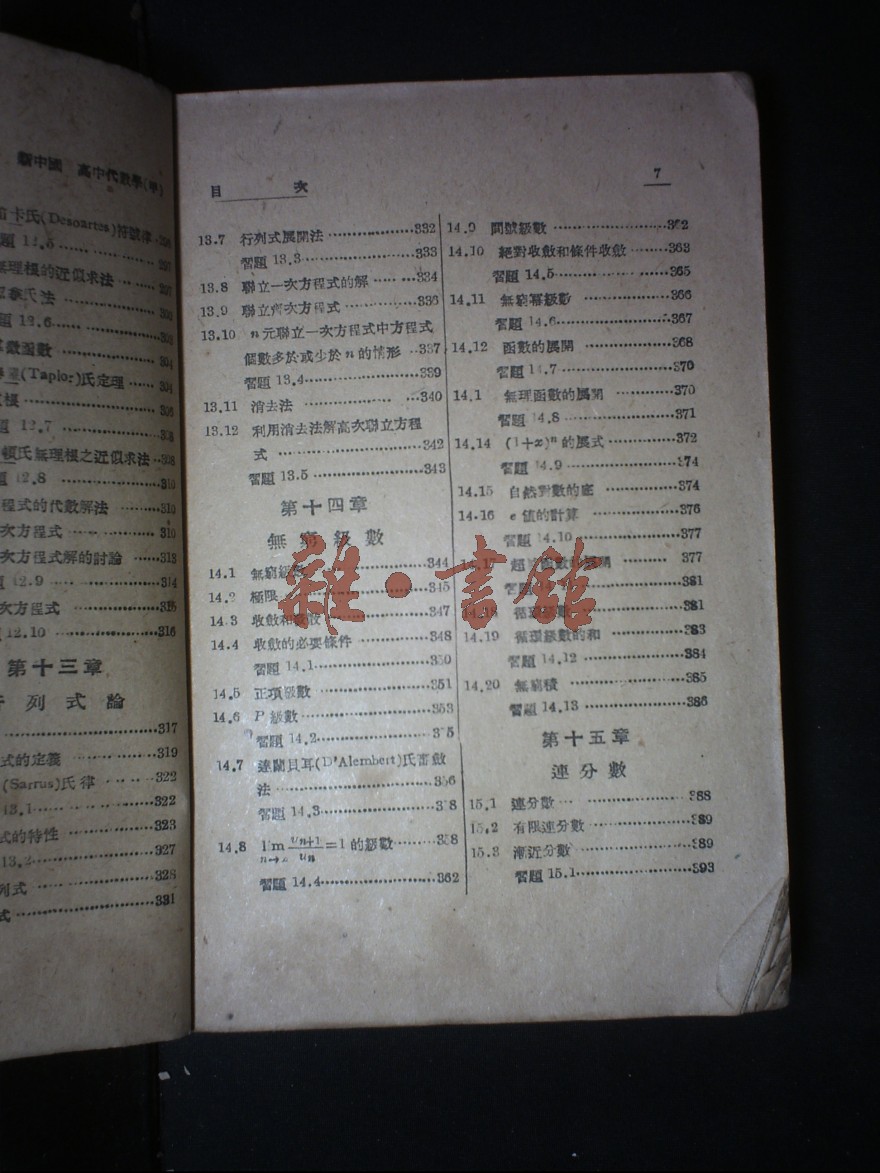 新中國 高中代數學(甲)
卡氏(Desoartes)符號律
12.5
無理根的近似求法
氏法
12.6
函數
(Taplor)氏定理 304
12.7
氏無理根之近似求法 308
12.8 310
程式的代數解法 310
次方程式 310
次方程式解的討論 313
12.9 314
次方程式 315
12.10 316
第十三章
行列式論
317
式的定義 319
(Sarrus)氏律 322
13.1 322
式的特性 323
13.2 327
列式 328
式 331
目 次
7
13.7 行列式展開法 332
習題 13.3 333
13.8 聯立一次方程式的解 334
13.9 聯立齊次方程式 336
13.10 n元聯立一次方程式中方程式
個數多於或少於 n 的情形 337
習題 13.4 339
13.11 消去法 340
13.12 利用消去法解高次聯立方程
式 342
習題 13.5 343
第十四章
無窮級數
14.1 無窮級數 344
14.2 極限 345
14.3 收斂和發散 347
14.4 收斂的必要條件 348
習題 14.1 350
14.5 正項級數 351
14.6 P 級數 353
習題 14.2
14.7 達蘭貝耳(D'Alembert)氏審斂
法 356
習題 14.3
14.8 lim n→∞ un+1/un =1 的級數
習題 14.4 362
14.9 間號級數
14.10 絕對收斂和條件收斂 363
習題 14.5 365
14.11 無窮冪級數 366
習題 14.6 367
14.12 函數的展開 368
習題 14.7 370
14.1 無理函數的展開 370
習題 14.8 371
14.14 (1+x)ⁿ 的展式 372
習題 14.9 374
14.15 自然對數的底 374
14.16 e 值的計算 376
習題 14.10 377
函數的展開 377
習題 381
循環級數 381
14.19 循環級數的和 383
習題 14.12 384
14.20 無窮積 385
習題 14.13 386
第十五章
連分數
15.1 連分數 388
15.2 有限連分數 389
15.3 漸近分數 389
習題 15.1 393
雜·書館